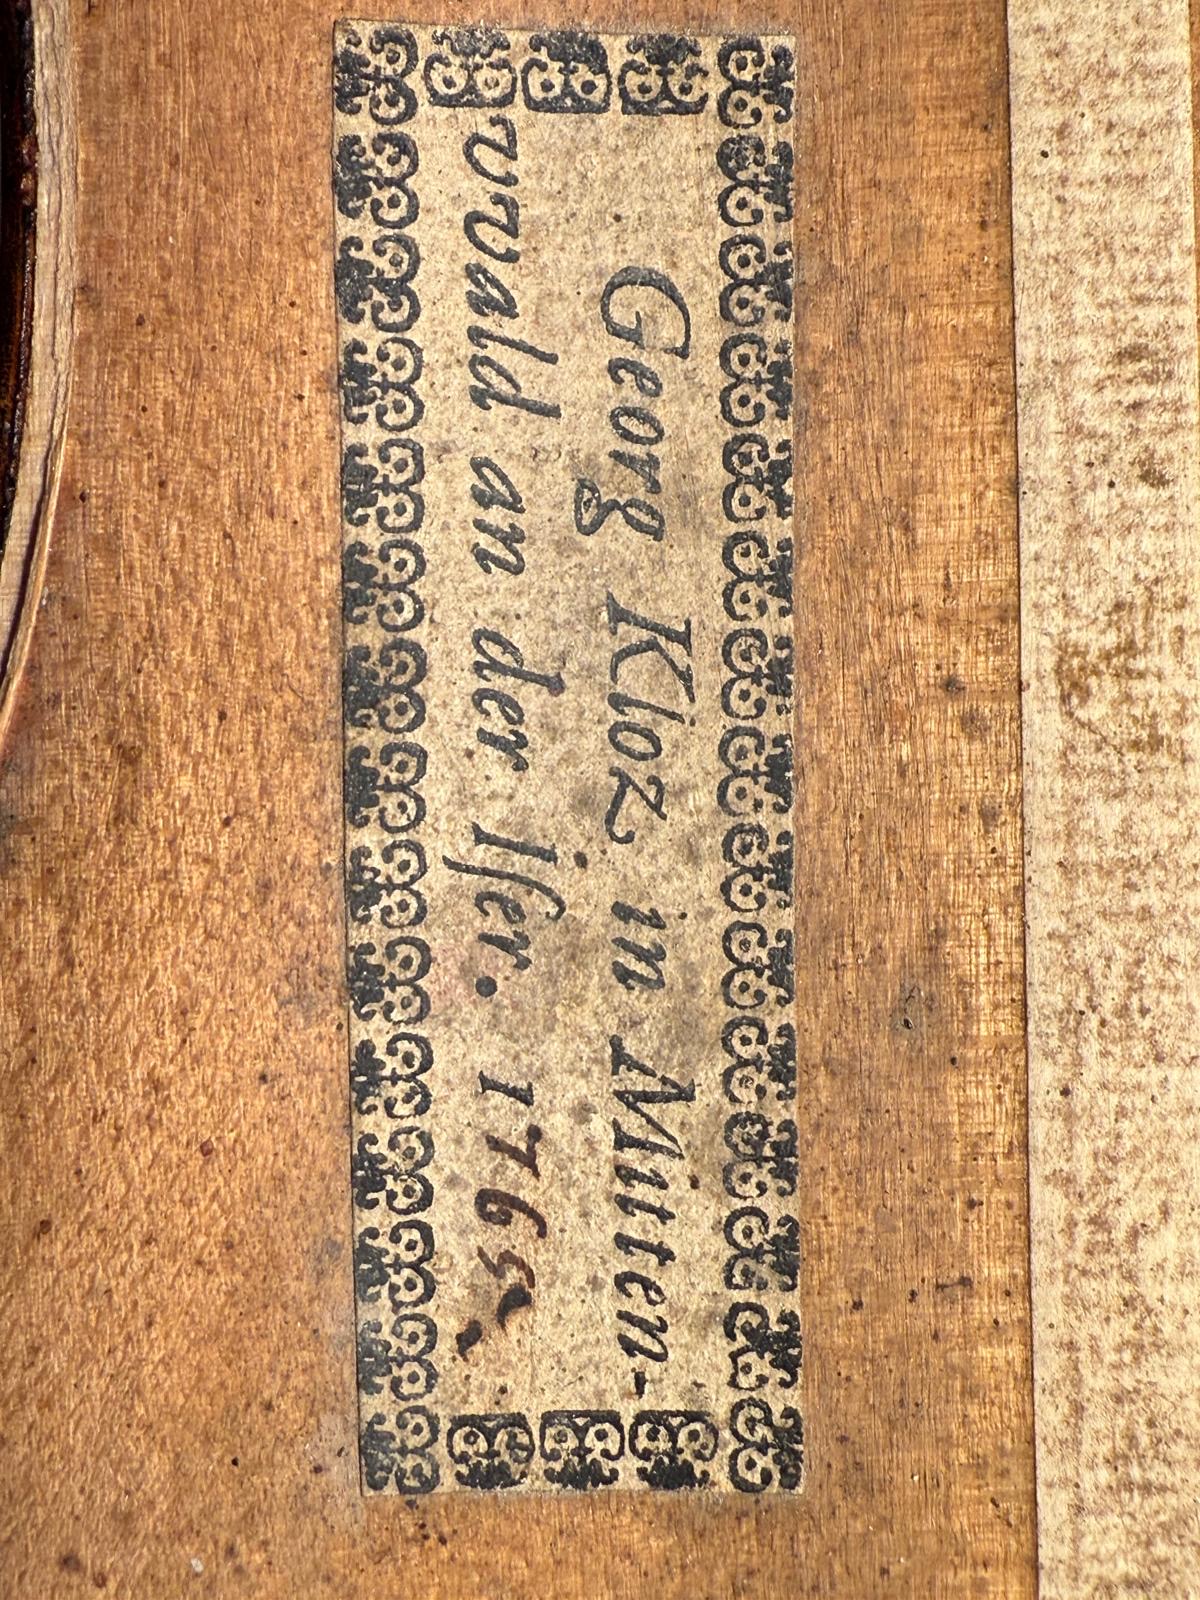 Georg Kloz in Mitten-
vvald an der Iſer. 1765